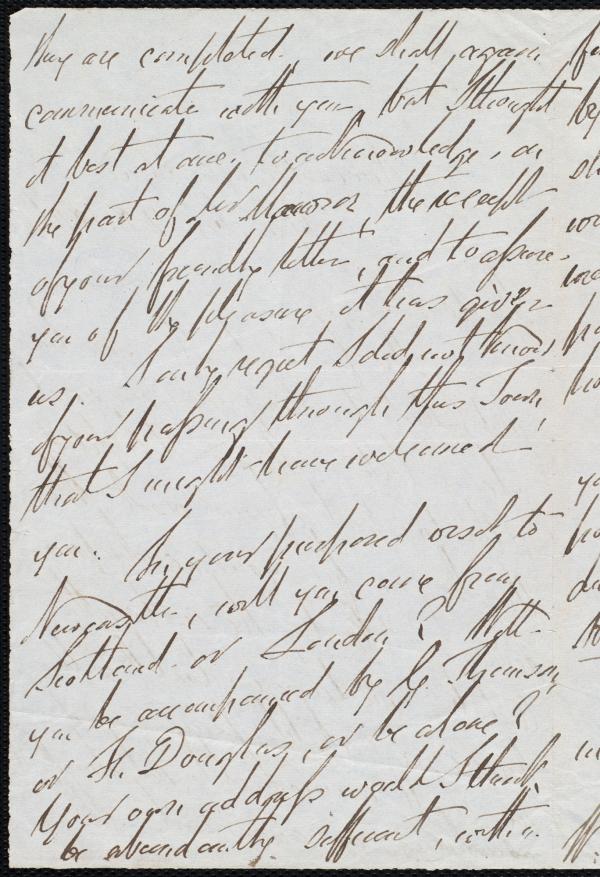 they are completed, we shall again
communicate with you but I thought
it best at once, to acknowledge, on
the part of the receipt
of your friendly letter, and to assure
you of the pleasure it has given
us. I only regret I did not know
of your passing through this Town,
that I might have welcomed
you. In your proposed visit to
Newcastle, will you come from
Scotland or London? Will
you be accompanied by G. Thompson,
or F. Douglas, or be alone?
Your own address would I think
be abundantly sufficient, with a